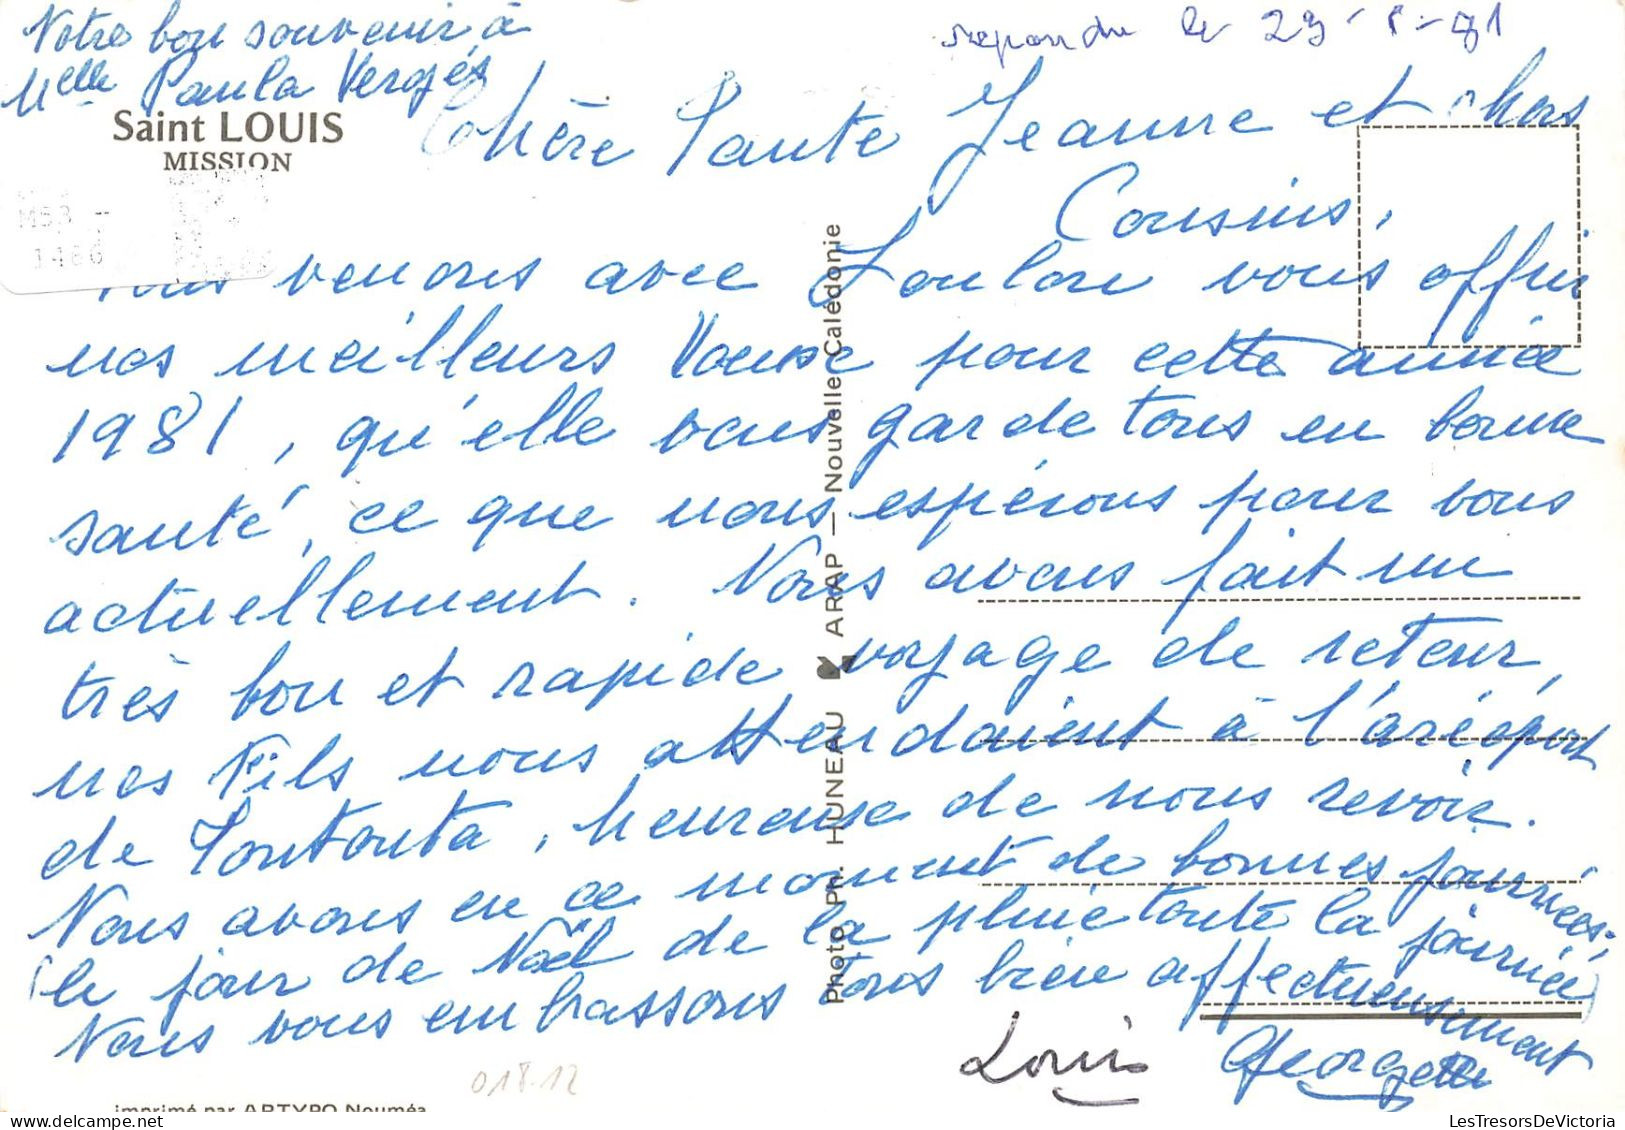 Votre bon souvenir à
Melle Paula Vergés
repondu le 29-1-81
Saint LOUIS
MISSION
M53 -
1480
Chère Tante Jeanne et chers
Cousins,
Nous venons avec Loulou vous offrir
nos meilleurs Voeuse pour cette année
1981, qu'elle vous garde tous en bonne
santé, ce que nous espérons pour vous
actuellement. Nous avons fait un
très bon et rapide voyage de retour,
nos Fils nous attendaient à l'aréoport
de Tontouta, heureuse de nous revoir.
Nous avons en ce moment de bonnes journées,
(le jour de Noël de la pluie toute la journée)
Nous vous embrassons tous bien affectueusement
Louis Georgette
018.12
Photo Ph. HUNEAU ARAP — Nouvelle Calédonie
imprimé par ARTYPO Nouméa
LesTresorsDeVictoria